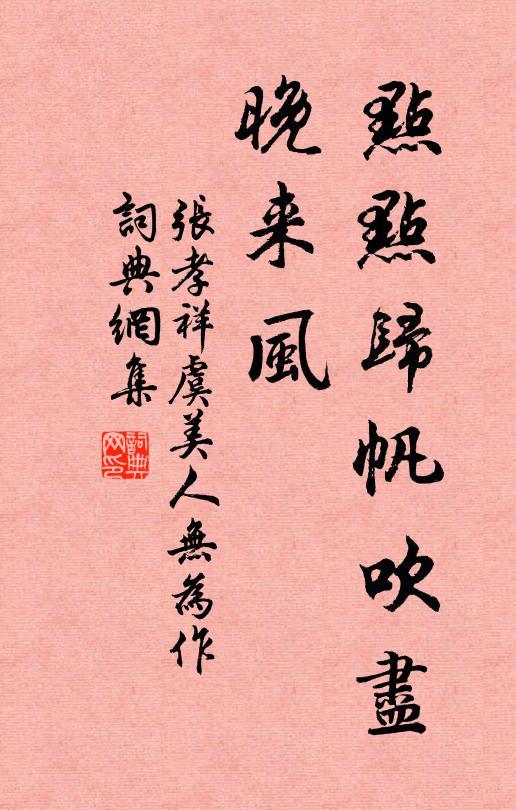 點點歸帆吹盡
晚来風
張孝祥虞美人無為作
詞典網集
詞典网印